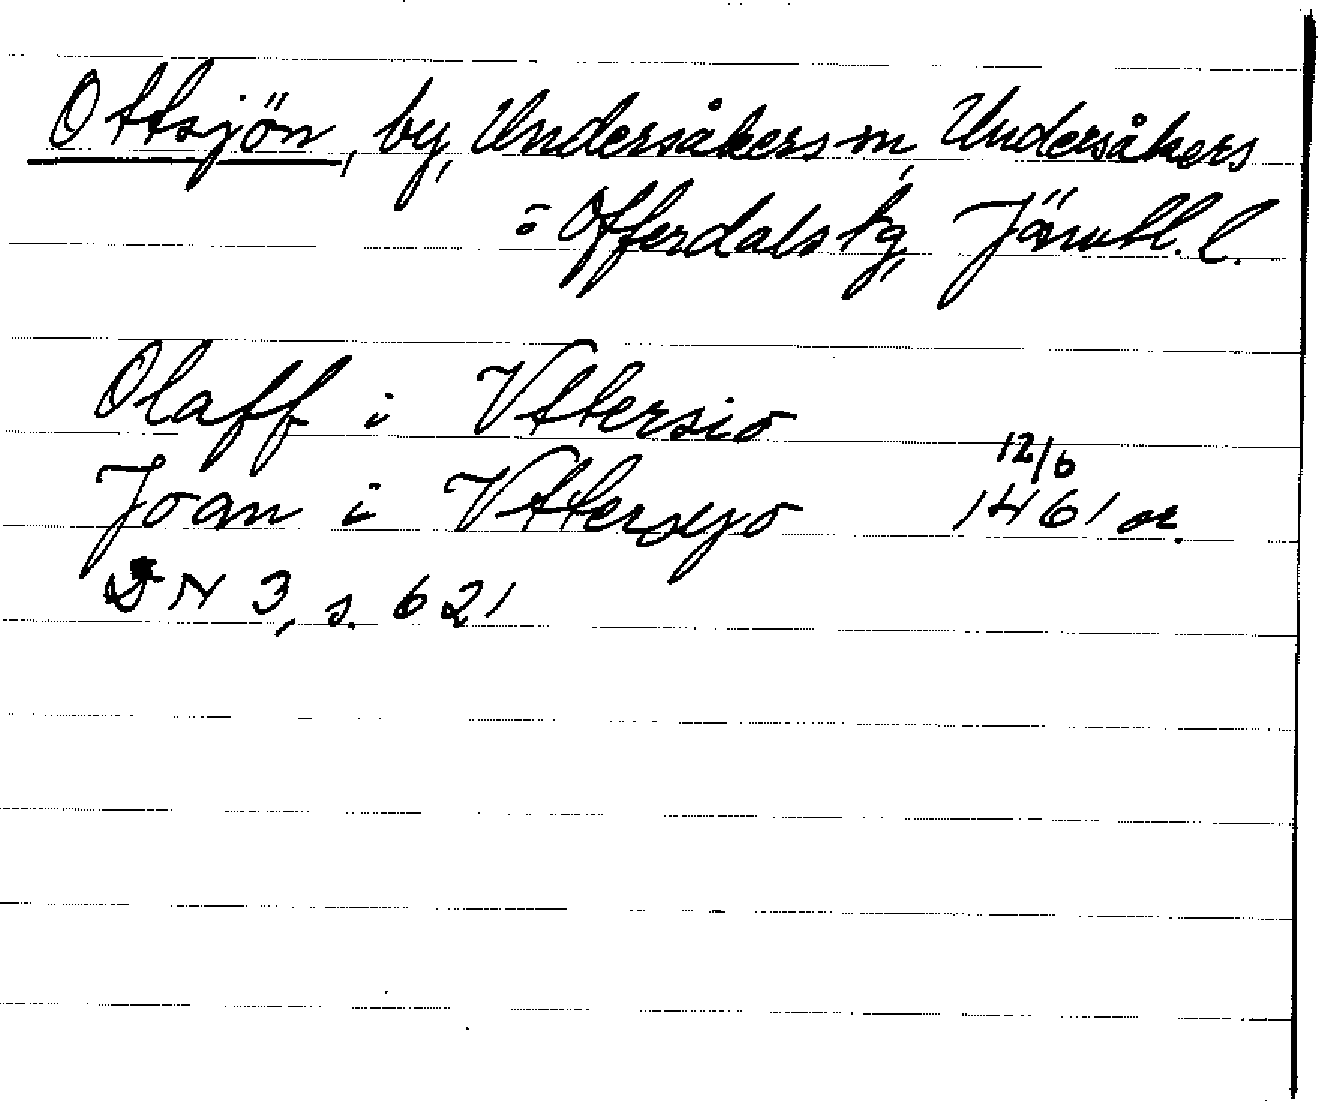 Ottsjön, by, Undersåkers sn, Undersåkers
o Offerdals tg, Jämtl. l.
Olaff i Vttersio
Joan i Vttersyo 12/6 1461 or.
DN 3, s. 621